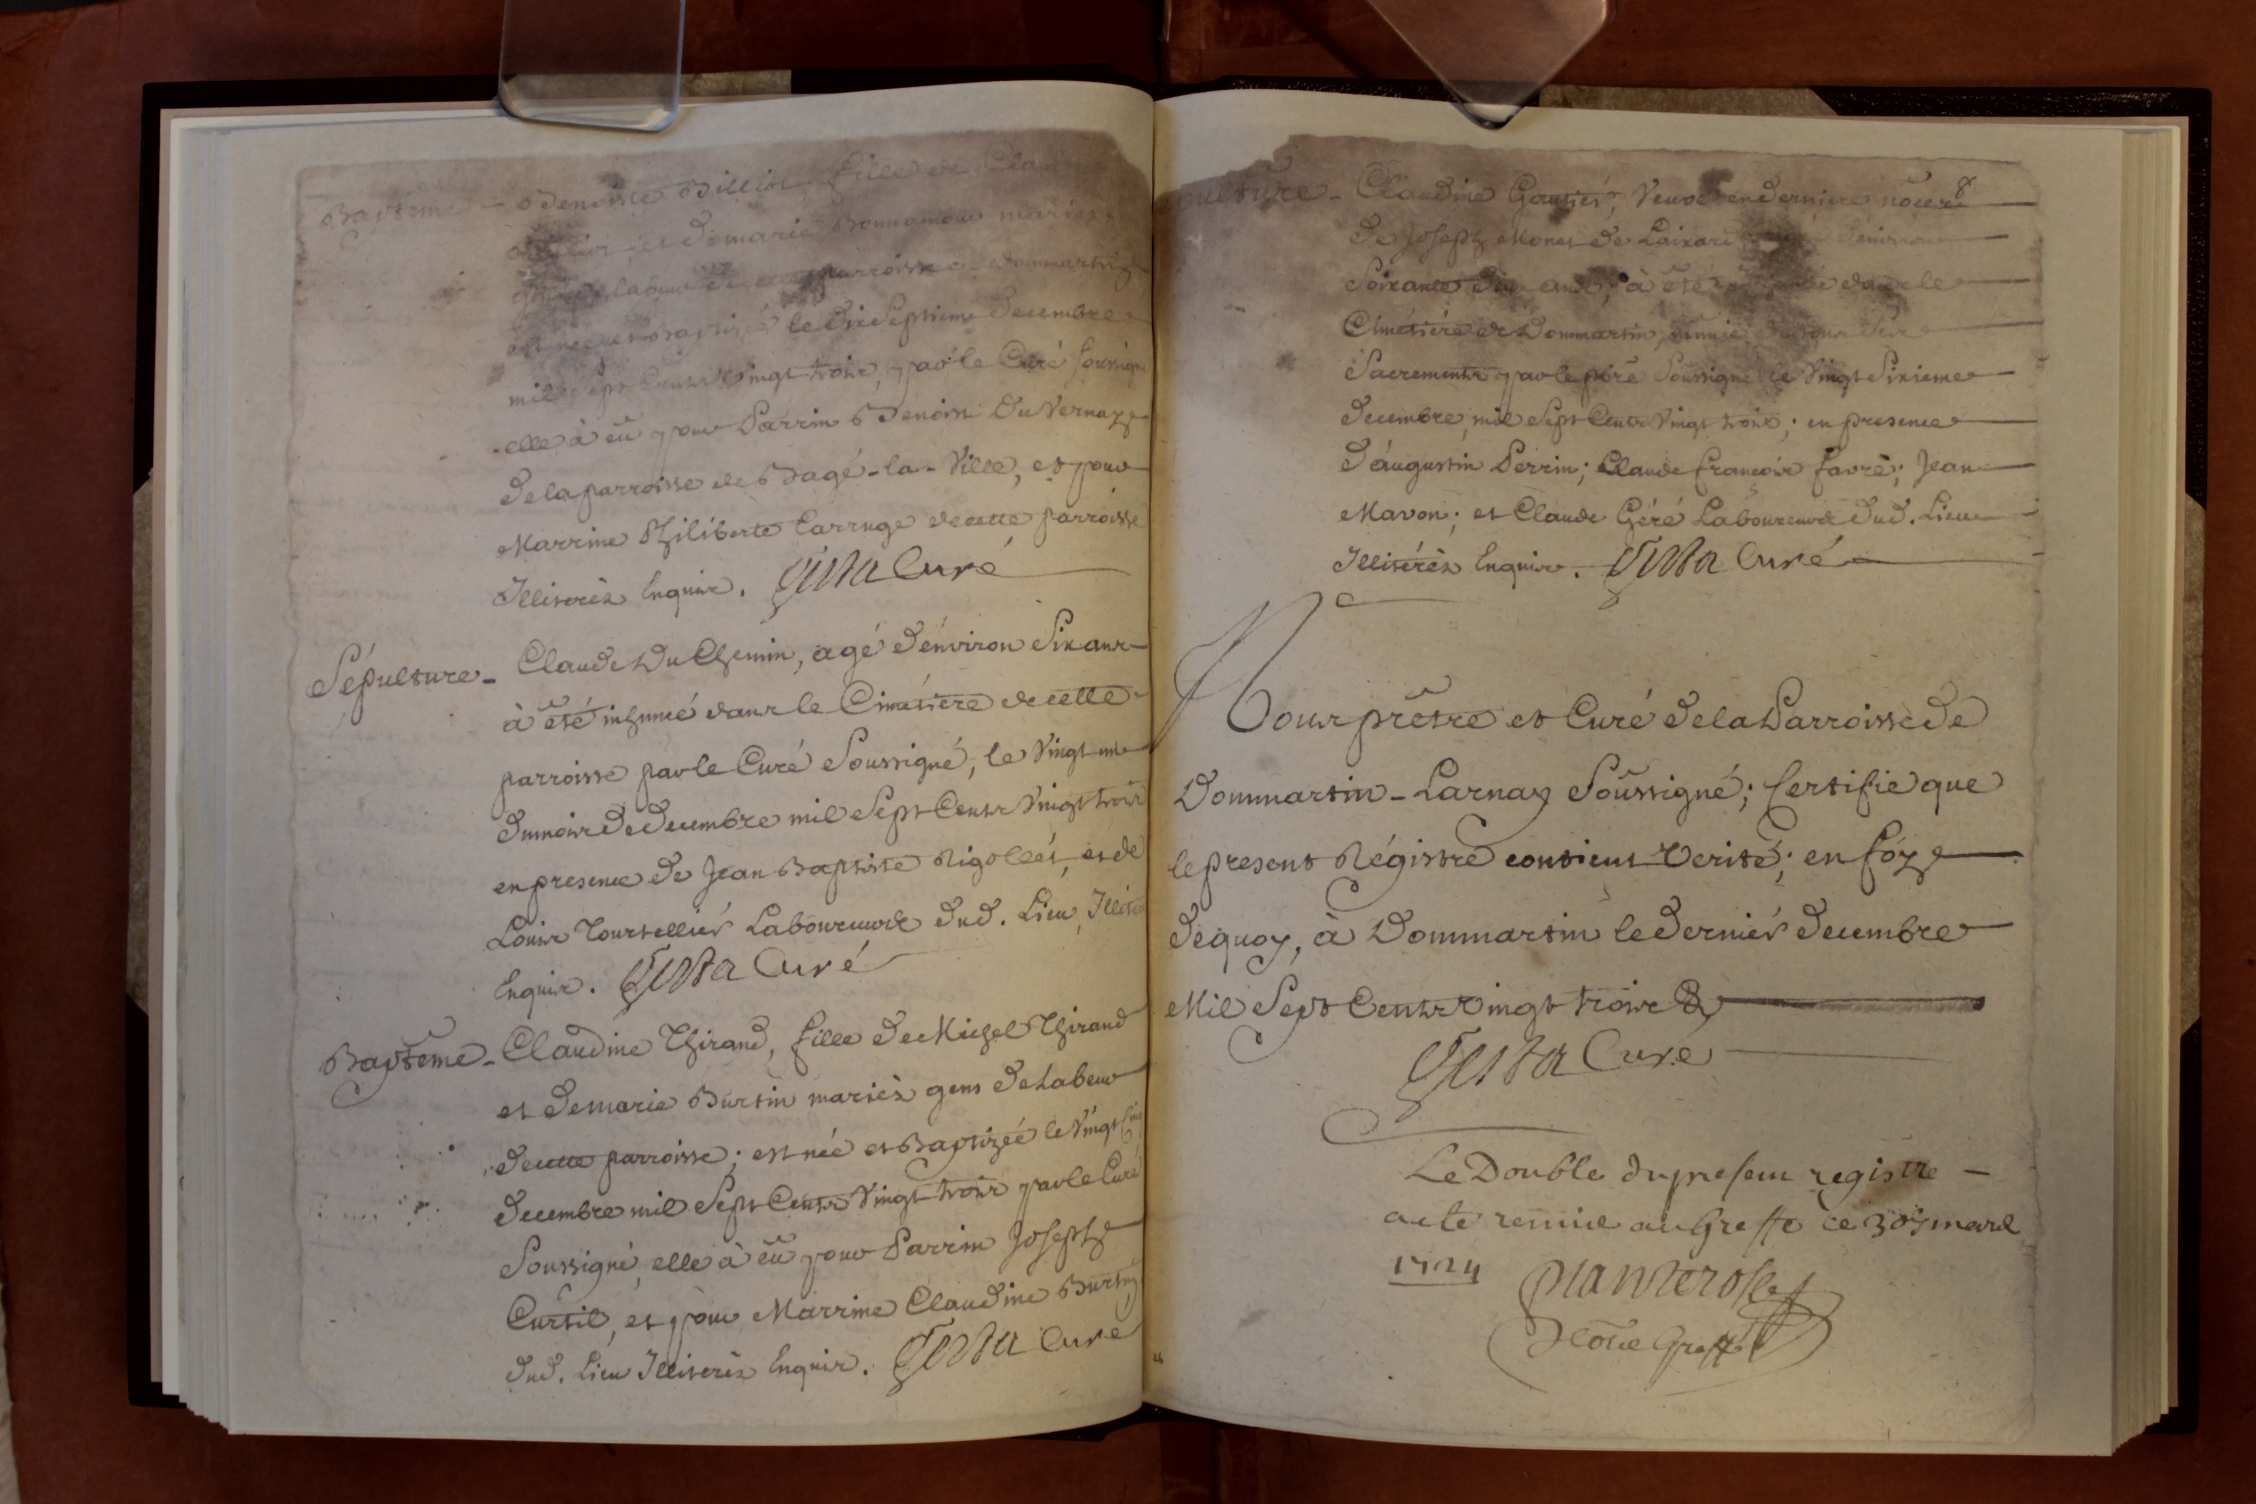 Baptême - Denoise Billiot, fille de Clau
et de marie Bonnamour mariés
gens de labeur de cette parroisse Dommartin
est née et Baptizée le dix Septieme Decembre
mil Sept Cents Vingt trois, par le Curé Soussigné
elle à eû pour Parrin Benoist Du Vernay
de la parroisse de Bagé-la-Ville, et pour
Marrine Philiberte Carruge de cette parroisse
Illiterés Enquis. Curé
Sépulture - Claude Du Chemin, agé d'énviron Six ans
à êté inhumé dans le Cimétiére de cette
parroisse par le Curé Soussigné, le Vingt un
du mois de Decembre mil Sept Cents Vingt trois
en presence de Jean Baptiste Rigollet, et de
Louis Tourtellier Laboureurs dud. Lieu, Illité
Enquis. Curé
Baptême - Claudine Thirand, fille de Michel Thirand
et de marie Burtin mariés gens de Labeur
de cette parroisse; est née et Baptizée le Vingt Cinq
decembre mil Sept Cents Vingt trois par le Curé
Soussigné, elle à eû pour Parrin Joseph
Curtil, et pour Marrine Claudine Burtin
dud. Lieu Illiterés Enquis. Curé
Claudine Gautier, Veuve en derniere nôces
de Joseph Monet de Laixard d'énviron
Soixante dix ans, à êté dans le
Cimétiére de Dommartin, munie de tous Ses
Sacrements par le pire Soussigné ce Vingt Sixieme
decembre mil Sept Cents Vingt trois; en presence
d'áugustin Perrin; Claude françois favré; Jean
Mavon; et Claude Géré Laboureurs dud. Lieu
Illiterés Enquis. Curé
Nous prêtre et Curé de la Parroisse de
Dommartin-Larnay Soussigné; Certifie que
le present Régistre contient Verité; en foy
dequoy, à Dommartin le dernier decembre
Mil Sept Cents Vingt trois &
Curé
Le Double du present registre
a este remise au Greffe ce 30 mars
1724
Greff